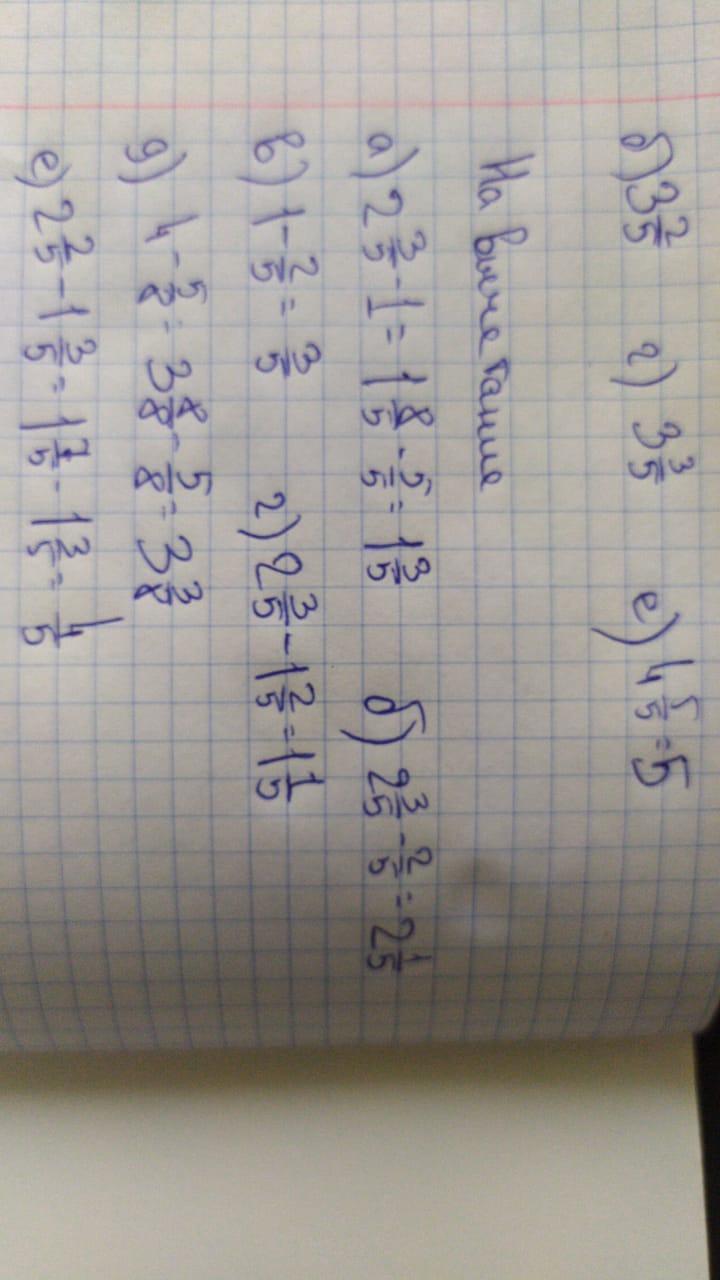 б) 3 2/5 г) 3 3/5 е) 4 5/5 = 5
На вычетание
а) 2 3/5 - 1 = 1 8/5 - 5/5 = 1 3/5 б) 2 3/5 - 2/5 = 2 1/5
в) 1 - 2/5 = 3/5 г) 2 3/5 - 1 2/5 = 1 1/5
д) 4 - 5/8 = 3 8/8 - 5/8 = 3 3/8
е) 2 2/5 - 1 3/5 = 1 7/5 - 1 3/5 = 4/5